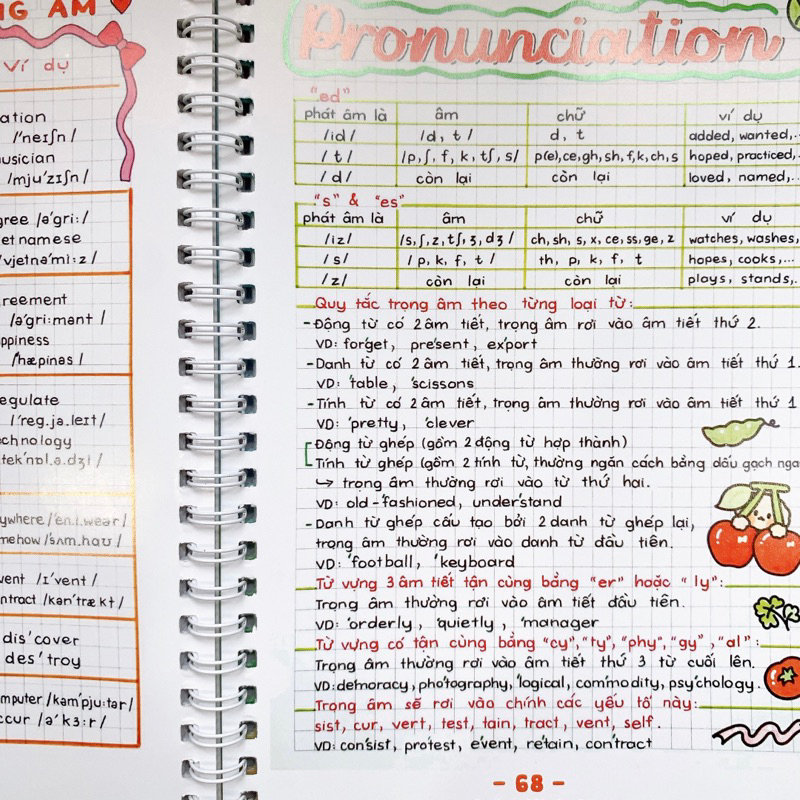 NG ÂM
Ví dụ
ation
/'neɪʃn/
usician
/mju'zɪʃn/
gree /ə'griː/
etnamese
/vjetnə'miːz/
reement
/ə'griːmənt/
ppiness
/'hæpinəs/
egulate
/'reg.jə.leɪt/
chnology
ywhere /'en.i.weər/
mehow /'sʌm.haʊ/
vent /ɪ'vent/
ntract /kən'trækt/
dis'cover
des'troy
mputer /kəm'pjuːtər/
ccur /ə'kɜːr/
Pronunciation
"ed"
phát âm là âm chữ ví dụ
/id/ /d, t/ d, t added, wanted,..
/t/ /p, ʃ, f, k, tʃ, s/ p(e), ce, gh, sh, f, k, ch, s hoped, practiced,..
/d/ còn lại còn lại loved, named,..
"s" & "es"
phát âm là âm chữ ví dụ
/iz/ /s, ʃ, z, tʃ, ʒ, dʒ/ ch, sh, s, x, ce, ss, ge, z watches, washes,
/s/ /p, k, f, t/ th, p, k, f, t hopes, cooks,...
/z/ còn lại còn lại plays, stands,..
Quy tắc trọng âm theo từng loại từ:
- Động từ có 2 âm tiết, trọng âm rơi vào âm tiết thứ 2.
VD: for'get, pre'sent, ex'port
- Danh từ có 2 âm tiết, trọng âm thường rơi vào âm tiết thứ 1.
VD: 'table, 'scissons
- Tính từ có 2 âm tiết, trọng âm thường rơi vào âm tiết thứ 1
VD: 'pretty, 'clever
Động từ ghép (gồm 2 động từ hợp thành)
Tính từ ghép (gồm 2 tính từ, thường ngăn cách bằng dấu gạch nga
↪ trọng âm thường rơi vào từ thứ hai.
VD: old-'fashioned, under'stand
- Danh từ ghép cấu tạo bởi 2 danh từ ghép lại,
trọng âm thường rơi vào danh từ đầu tiên.
VD: 'football, 'keyboard
Từ vựng 3 âm tiết tận cùng bằng "er" hoặc "ly":
Trọng âm thường rơi vào âm tiết đầu tiên.
VD: 'orderly, 'quietly, 'manager
Từ vựng có tận cùng bằng "cy", "ty", "phy", "gy", "al":
Trọng âm thường rơi vào âm tiết thứ 3 từ cuối lên.
VD: de'moracy, pho'tography, 'logical, com'modity, psy'chology.
Trọng âm sẽ rơi vào chính các yếu tố này:
sist, cur, vert, test, tain, tract, vent, self.
VD: con'sist, pro'test, e'vent, re'tain, con'tract
- 68 -